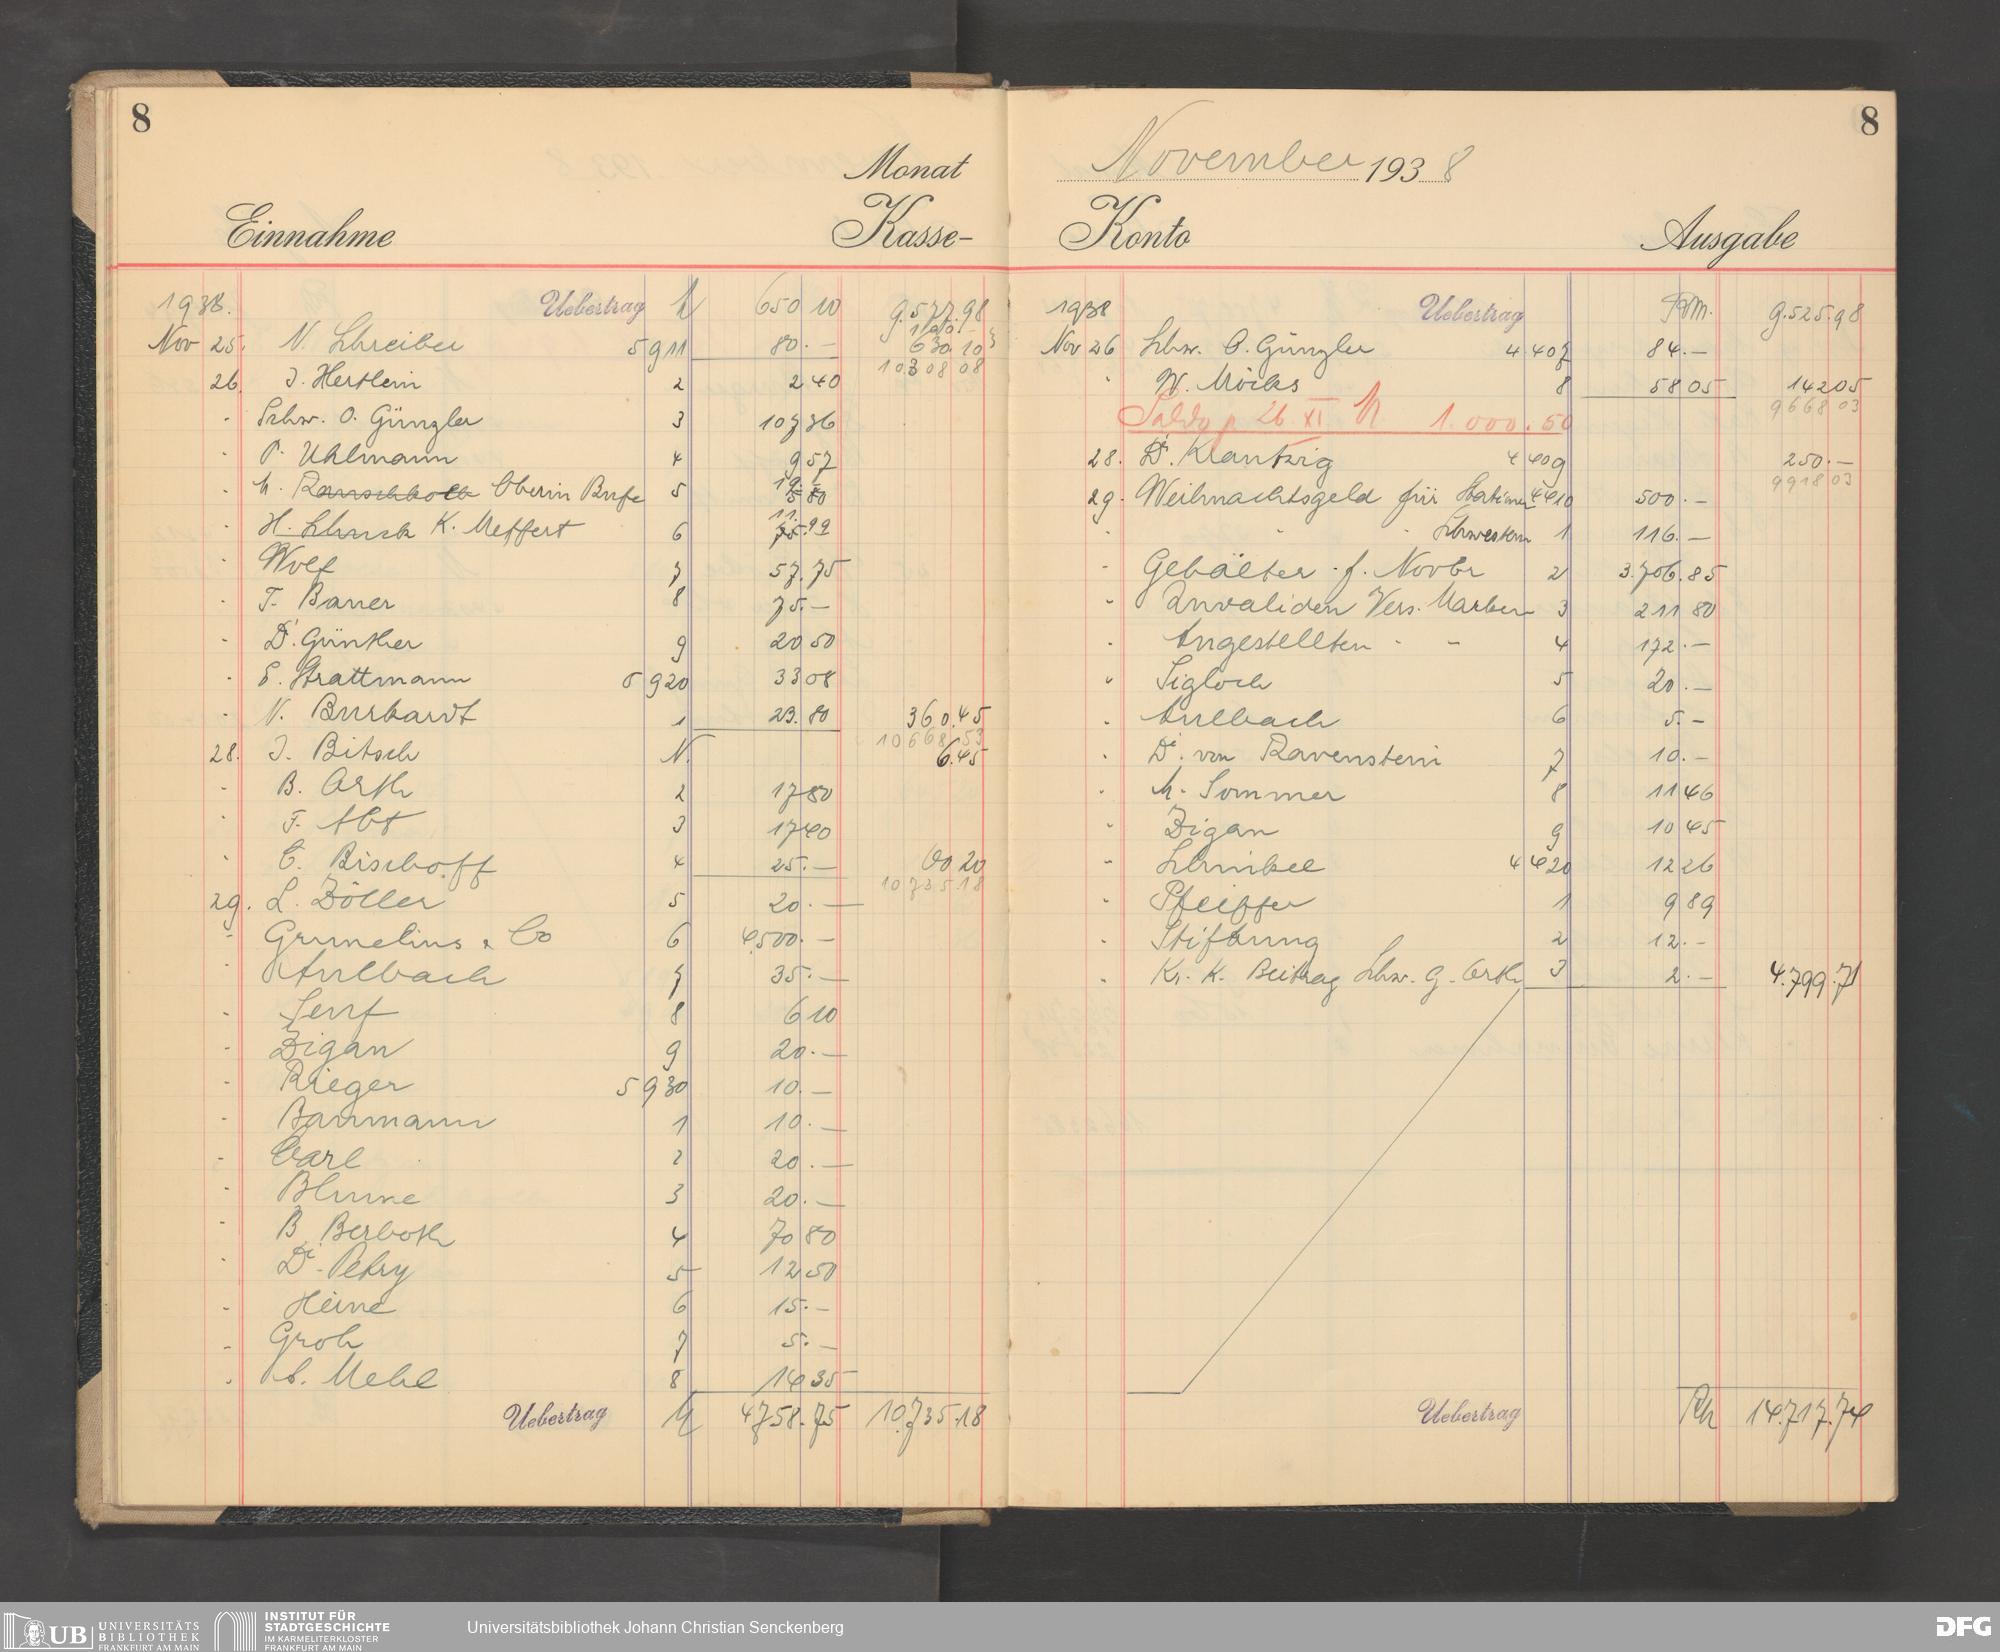 8
Monat
Einnahme Kasse-
1938. Uebertrag 650 10 9.577.98
100.-
Nov 25. N. Schreiber 5911 80.- 630.10
10308 08
26. J. Hertlein 2 2 40
- Schw. O. Günzler 3 107 36
- P. Uhlmann 4 9 57
- Oberin Bufe 5 19.-
- H. Schuck K. Meffert 6 11.99
- Wolf 7 57.75
- F. Bauer 8 75.-
- Dr. Günther 9 20 50
- E. Strattmann 5920 33 08
- N. Burkardt 1 23.80 360.45
10668.53
28. J. Bitsch N. 6.45
- B. Orth 2 17 80
- F. Abt 3 17 40
- C. Bischoff 4 25.- 60 20
10735 18
29. L. Zöller 5 20.-
- Grunelius & Co 6 4500.-
- Aulbach 7 35.-
- Senf 8 6 10
- Zigan 9 20.-
- Rieger 5930 10.-
- Baumann 1 10.-
- Carl 2 20.-
- Blume 3 20.-
- B. Berboth 4 70 80
- Dr. Petry 5 12 50
- Heine 6 15.-
- Groh 7 5.-
- Mehl 8 14 35
Uebertrag 4758.75 10.735.18
8
November 1938
Konto Ausgabe
1938 Uebertrag RM. 9.525.98
Nov 26 Schw. O. Günzler 4407 84.-
- W. Möcks 8 58 05 142 05
9668 03
Saldo p. 26. XI 1.000.50
28. Dr. Krantzig 4409 250.-
9918 03
29. Weihnachtsgeld für 4410 500.-
- " " Schwestern 1 116.-
- Gehälter f. Novbr 2 3.706.85
- Invaliden Vers. Marken 3 211 80
- Angestellten - - 4 172.-
- Sigloch 5 20.-
- Aulbach 6 5.-
- Dr. von Ravenstein 7 10.-
- M. Sommer 8 11 46
- Zigan 9 10 45
- Schinkel 4420 12 26
- Pfeiffer 1 9 89
- Stiftung 2 12.-
- Kr. K. Beitrag Schw. G. Orth 3 2.- 4.799.71
Uebertrag RM 14.717.74
UB UNIVERSITÄTS
BIBLIOTHEK
FRANKFURT AM MAIN
INSTITUT FÜR
STADTGESCHICHTE
IM KARMELITERKLOSTER
FRANKFURT AM MAIN
Universitätsbibliothek Johann Christian Senckenberg
DFG